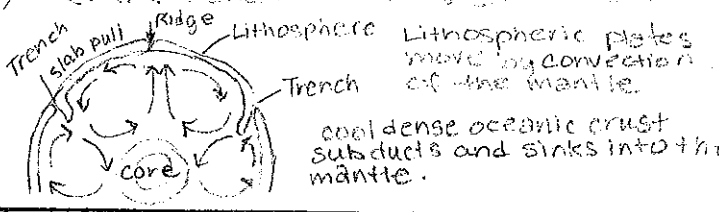 Ridge
Trench
slab pull
Lithosphere
Trench
core
Lithospheric plates
move by convection
of the mantle
cool dense oceanic crust
subducts and sinks into th
mantle.